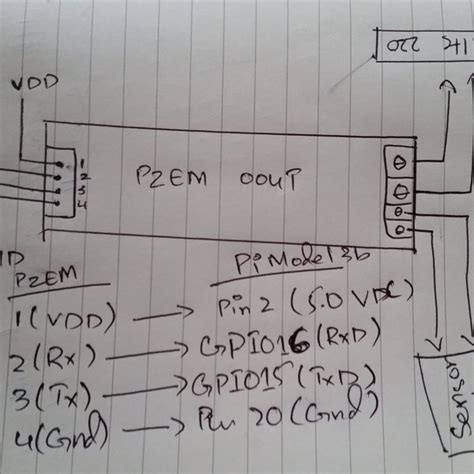 220
VDD
1
2
3
4
PZEM 004T
PZEM
Pi Model 3b
1 (VDD) → Pin 2 (5.0 VDC)
2 (Rx) → GPIO16 (RxD)
3 (Tx) → GPIO15 (TxD)
4 (Gnd) → Pin 20 (Gnd)
Sensor